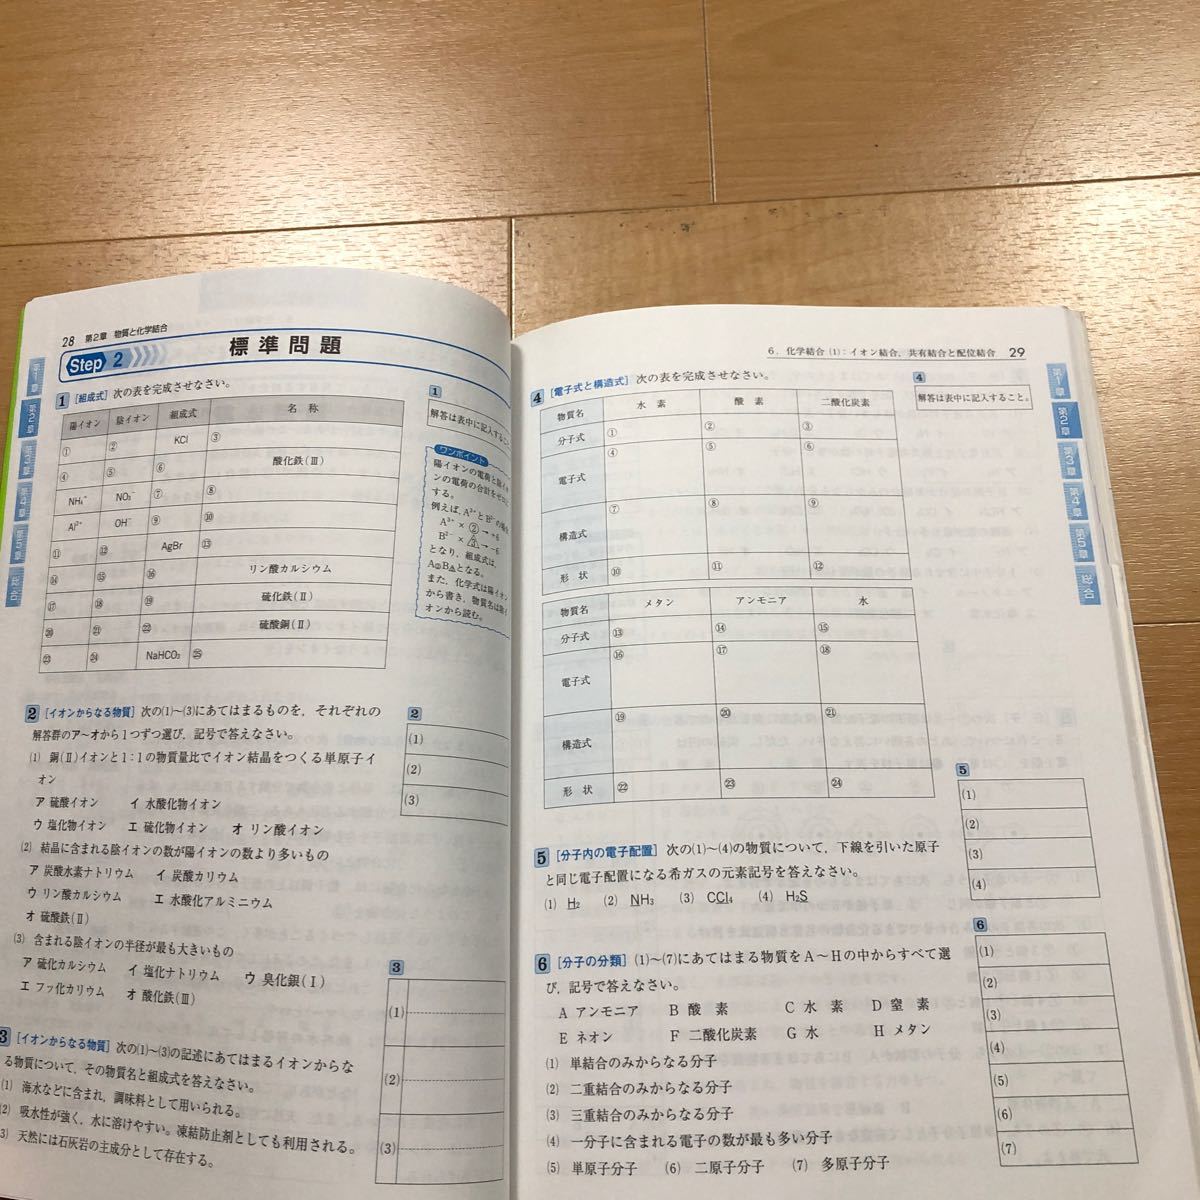 28 第2章 物質と化学結合
Step 2 標準問題
1 [組成式] 次の表を完成させなさい。
陽イオン 陰イオン 組成式 名称
① ② KCl ③
④ ⑤ ⑥ 酸化鉄(Ⅲ)
NH₄⁺ NO₃⁻ ⑦ ⑧
Al³⁺ OH⁻ ⑨ ⑩
⑪ ⑫ AgBr ⑬
⑭ ⑮ ⑯ リン酸カルシウム
⑰ ⑱ ⑲ 硫化鉄(Ⅱ)
⑳ ㉑ ㉒ 硫酸銅(Ⅱ)
㉓ ㉔ NaHCO₃ ㉕
1
解答は表中に記入すること。
ワンポイント
陽イオンの電荷と陰イオ
ンの電荷の合計をゼロに
する。
例えば，A³⁺とB²⁻の場合
A³⁺ × ② → +6
B²⁻ × ③ → −6
となり，組成式は，
A②B③となる。
また，化学式は陽イオン
から書き，物質名は陰イ
オンから読む。
2 [イオンからなる物質] 次の(1)〜(3)にあてはまるものを，それぞれの
解答群のア〜オから1つずつ選び，記号で答えなさい。
(1) 銅(Ⅱ)イオンと1：1の物質量比でイオン結晶をつくる単原子イ
オン
ア 硫酸イオン イ 水酸化物イオン
ウ 塩化物イオン エ 硫化物イオン オ リン酸イオン
(2) 結晶に含まれる陰イオンの数が陽イオンの数より多いもの
ア 炭酸水素ナトリウム イ 炭酸カリウム
ウ リン酸カルシウム エ 水酸化アルミニウム
オ 硫酸鉄(Ⅱ)
(3) 含まれる陰イオンの半径が最も大きいもの
ア 硫化カルシウム イ 塩化ナトリウム ウ 臭化銀(Ⅰ)
エ フッ化カリウム オ 酸化鉄(Ⅲ)
2
(1)
(2)
(3)
3 [イオンからなる物質] 次の(1)〜(3)の記述にあてはまるイオンからな
る物質について，その物質名と組成式を答えなさい。
(1) 海水などに含まれ，調味料として用いられる。
(2) 吸水性が強く，水に溶けやすい。凍結防止剤としても利用される。
3) 天然には石灰岩の主成分として存在する。
3
(1)
(2)
(3)
第1章
第2章
第4章
第5章
総合
6．化学結合(1)：イオン結合，共有結合と配位結合 29
4 [電子式と構造式] 次の表を完成させなさい。
物質名 水素 酸素 二酸化炭素
分子式 ① ② ③
電子式 ④ ⑤ ⑥
構造式 ⑦ ⑧ ⑨
形状 ⑩ ⑪ ⑫
物質名 メタン アンモニア 水
分子式 ⑬ ⑭ ⑮
電子式 ⑯ ⑰ ⑱
構造式 ⑲ ⑳ ㉑
形状 ㉒ ㉓ ㉔
4
解答は表中に記入すること。
5 [分子内の電子配置] 次の(1)〜(4)の物質について，下線を引いた原子
と同じ電子配置になる希ガスの元素記号を答えなさい。
(1) H₂ (2) NH₃ (3) CCl₄ (4) H₂S
5
(1)
(2)
(3)
(4)
6 [分子の分類] (1)〜(7)にあてはまる物質をA〜Hの中からすべて選
び，記号で答えなさい。
A アンモニア B 酸素 C 水素 D 窒素
E ネオン F 二酸化炭素 G 水 H メタン
(1) 単結合のみからなる分子
(2) 二重結合のみからなる分子
(3) 三重結合のみからなる分子
(4) 一分子に含まれる電子の数が最も多い分子
(5) 単原子分子 (6) 二原子分子 (7) 多原子分子
6
(1)
(2)
(3)
(4)
(5)
(6)
(7)
第1章
第2章
第3章
第4章
第5章
総合